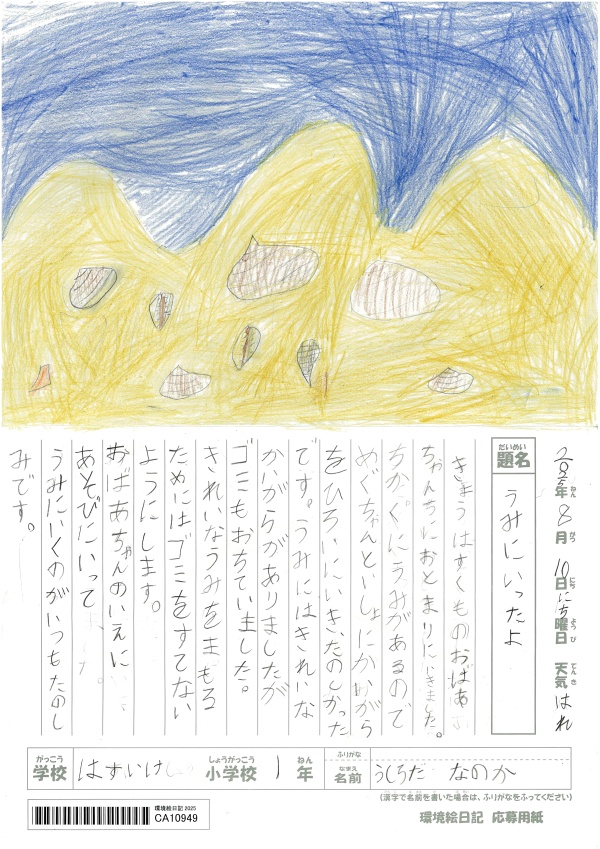 2025年 8月 10日 にち曜日 天気 はれ
ねん がつ にち ようび てんき
だいめい
題名
うみにいったよ
きょうはすくものおばあ
ちゃんちにおとまりにいきました。
ちかくにうみがあるので
めぐちゃんといしょにかいがら
をひろいにいき、たのしかった
です。うみにはきれいな
かいがらがありましたが
ゴミもおちていました。
きれいなうみをまもる
ためにはゴミをすてない
ようにします。
おばあちゃんのいえに
あそびにいって
うみにいくのがいつもたのし
みです。
がっこう しょうがっこう ねん ふりがな
学校 はすいけ 小学校 1 年
なまえ
名前 うしろだ なのか
(漢字で名前を書いた場合は、ふりがなをふってください)
環境絵日記 2025
CA10949
環境絵日記 応募用紙